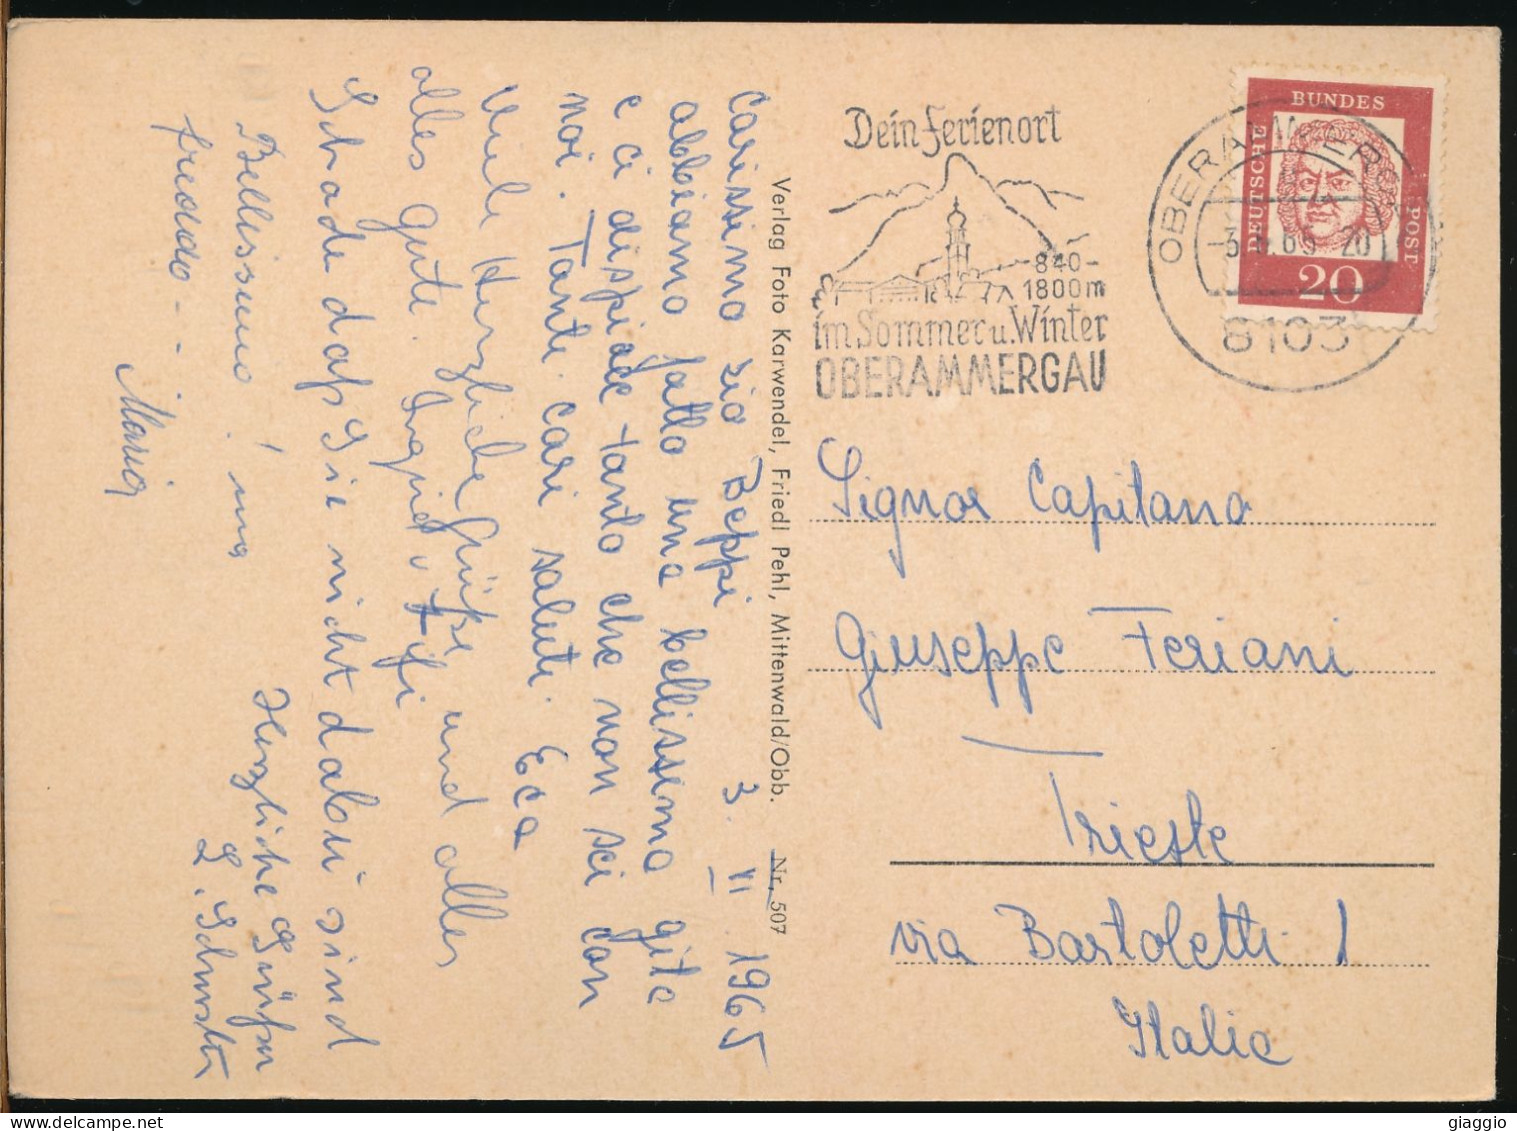 Carissimo zio Beppi 3. VI 1965
abbiamo fatto una bellissima gita
e ci dispiace tanto che non sei con
noi. Tanti cari saluti. Eca
Viele Herzliche Grüße und alles
alles gute. Ingrid, + Ifi
Schade daß Sie nicht dabei sind
Herzliche Grüße
Bellissimo! ma
freddo - -
Maria
Verlag Foto Karwendel, Friedl Pehl, Mittenwald/Obb. Nr. 507
Dein Ferienort
840-
1800m
im Sommer u. Winter
OBERAMMERGAU
OBERAMMERGAU
8103
DEUTSCHE
BUNDES
POST
20
Signor Capitano
Giuseppe Feriani
Trieste
via Bartoletti 1
Italia
giaggio